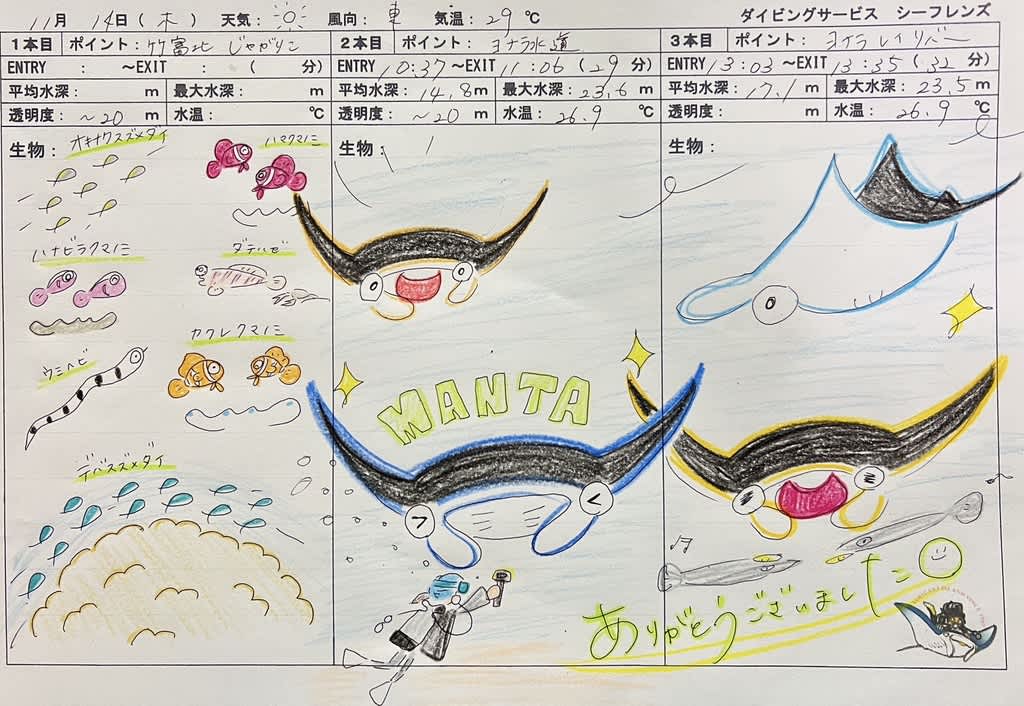 11月 14日(木) 天気: 風向: 東 気温: 29 ℃ ダイビングサービス シーフレンズ
1本目 ポイント: 竹富北 じゃがりこ
ENTRY : ～EXIT : ( 分)
平均水深: m 最大水深: m
透明度: ～20 m 水温: ℃
生物:
オキナワスズメダイ
ハマクマノミ
ハナビラクマノミ
ダテハゼ
ウミヘビ
カクレクマノミ
デバスズメダイ
2本目 ポイント: ヨナラ水道
ENTRY 10:37 ～EXIT 11:06 (29 分)
平均水深: 14.8 m 最大水深: 23.6 m
透明度: ～20 m 水温: 26.9 ℃
生物:
MANTA
3本目 ポイント:
ENTRY 13:03 ～EXIT 13:35 (32 分)
平均水深: 17.1 m 最大水深: 23.5 m
透明度: m 水温: 26.9 ℃
生物:
ありがとうございました